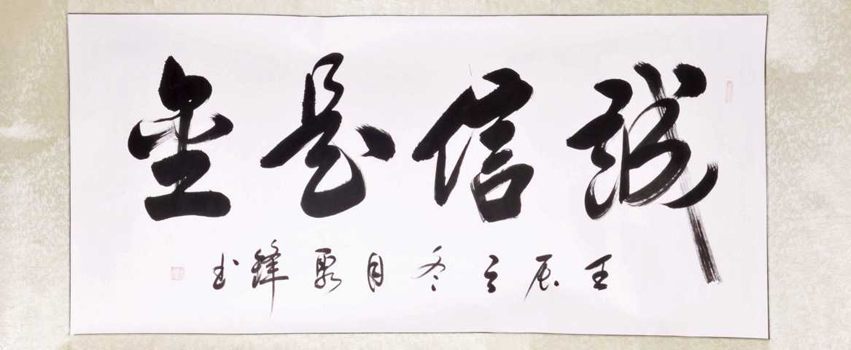 誠信是金
壬辰之冬月聚鋒书